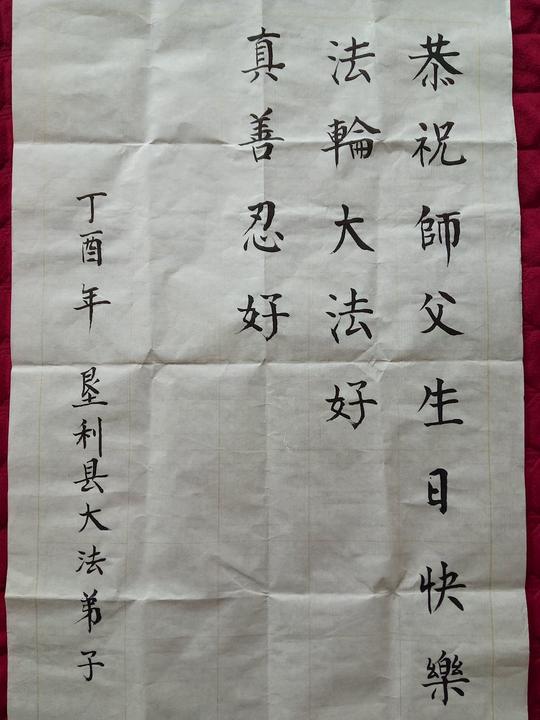 恭祝師父生日快樂
法輪大法好
真善忍好
丁酉年 垦利县大法弟子